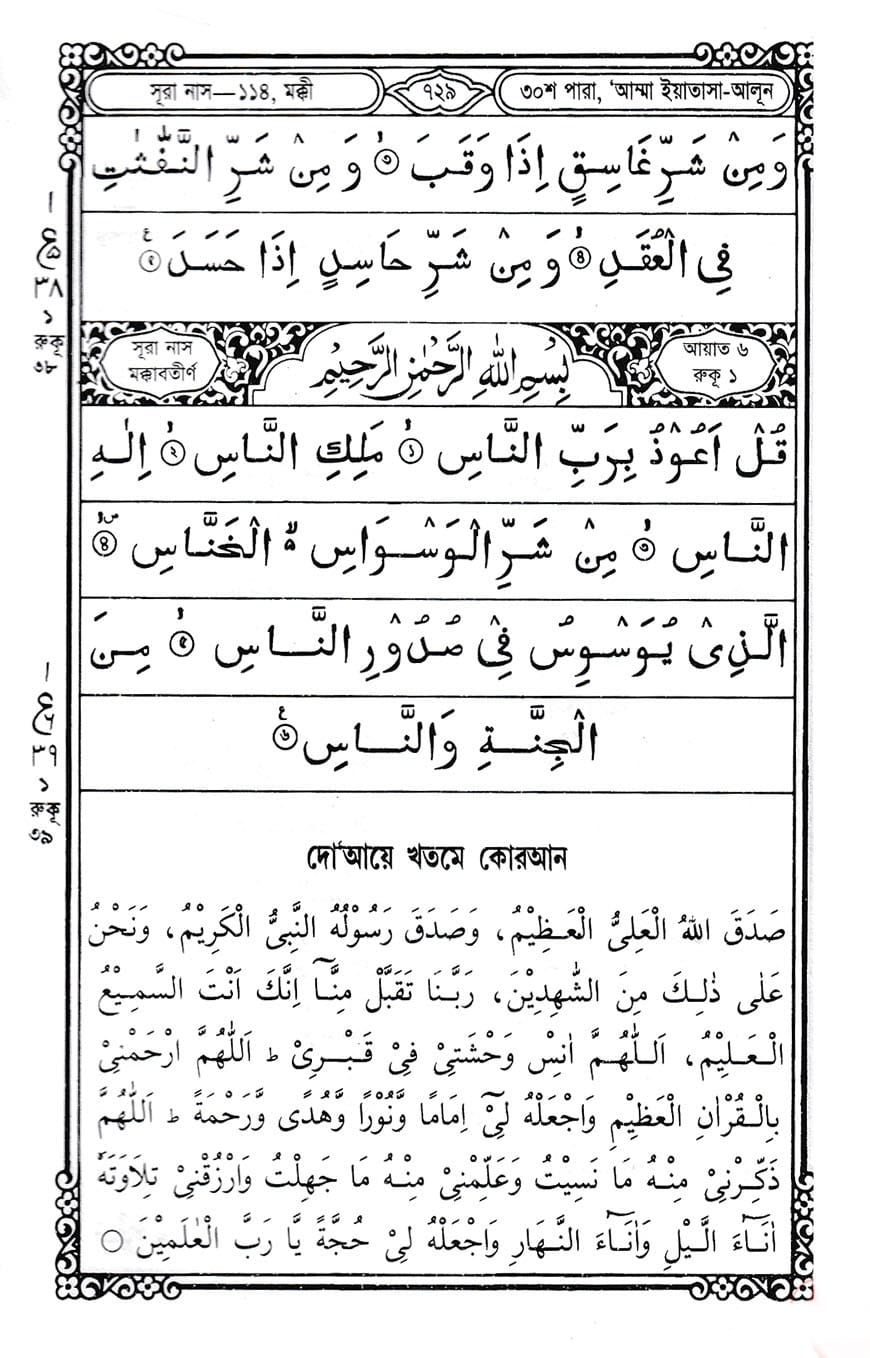 সূরা নাস—১১৪, মক্কী
৭২৯
৩০শ পারা, ‘আম্মা ইয়াতাসা-আলূন
وَمِنْ شَرِّ غَاسِقٍ اِذَا وَقَبَ ۙ‏৩ وَمِنْ شَرِّ النَّفّٰثٰتِ
فِي الْعُقَدِ ۙ‏৪ وَمِنْ شَرِّ حَاسِدٍ اِذَا حَسَدَ ۠‏৫
১
ع৫
৩৮
১
রুকূ
৩৮
সূরা নাস
মক্কাবতীর্ণ
بِسْمِ اللهِ الرَّحْمٰنِ الرَّحِيْمِ
আয়াত ৬
রুকূ ১
قُلْ اَعُوْذُ بِرَبِّ النَّاسِ ۙ‏১ مَلِكِ النَّاسِ ۙ‏২ اِلٰهِ
النَّاسِ ۙ‏৩ مِنْ شَرِّ الْوَسْوَاسِ ۙ۬ الْخَنَّاسِ ۪ۙ‏৪
الَّذِىْ يُوَسْوِسُ فِىْ صُدُوْرِ النَّاسِ ۙ‏৫ مِنَ
الْجِنَّةِ وَالنَّاسِ ۠‏৬
১
ع৬
৩৯
১
রুকূ
৩৯
দো‘আয়ে খতমে কোরআন
صَدَقَ اللهُ الْعَلِىُّ الْعَظِيْمُ، وَصَدَقَ رَسُوْلُهُ النَّبِىُّ الْكَرِيْمُ، وَنَحْنُ
عَلٰى ذٰلِكَ مِنَ الشّٰهِدِيْنَ، رَبَّنَا تَقَبَّلْ مِنَّآ اِنَّكَ اَنْتَ السَّمِيْعُ
الْعَلِيْمُ، اَللّٰهُمَّ اٰنِسْ وَحْشَتِىْ فِىْ قَبْرِىْ ط اَللّٰهُمَّ ارْحَمْنِىْ
بِالْقُرْاٰنِ الْعَظِيْمِ وَاجْعَلْهُ لِىْٓ اِمَامًا وَّنُوْرًا وَّهُدًى وَّرَحْمَةً ط اَللّٰهُمَّ
ذَكِّرْنِىْ مِنْهُ مَا نَسِيْتُ وَعَلِّمْنِىْ مِنْهُ مَا جَهِلْتُ وَارْزُقْنِىْ تِلَاوَتَهٗ
اٰنَآءَ الَّيْلِ وَاٰنَآءَ النَّهَارِ وَاجْعَلْهُ لِىْ حُجَّةً يَّا رَبَّ الْعٰلَمِيْنَ ○